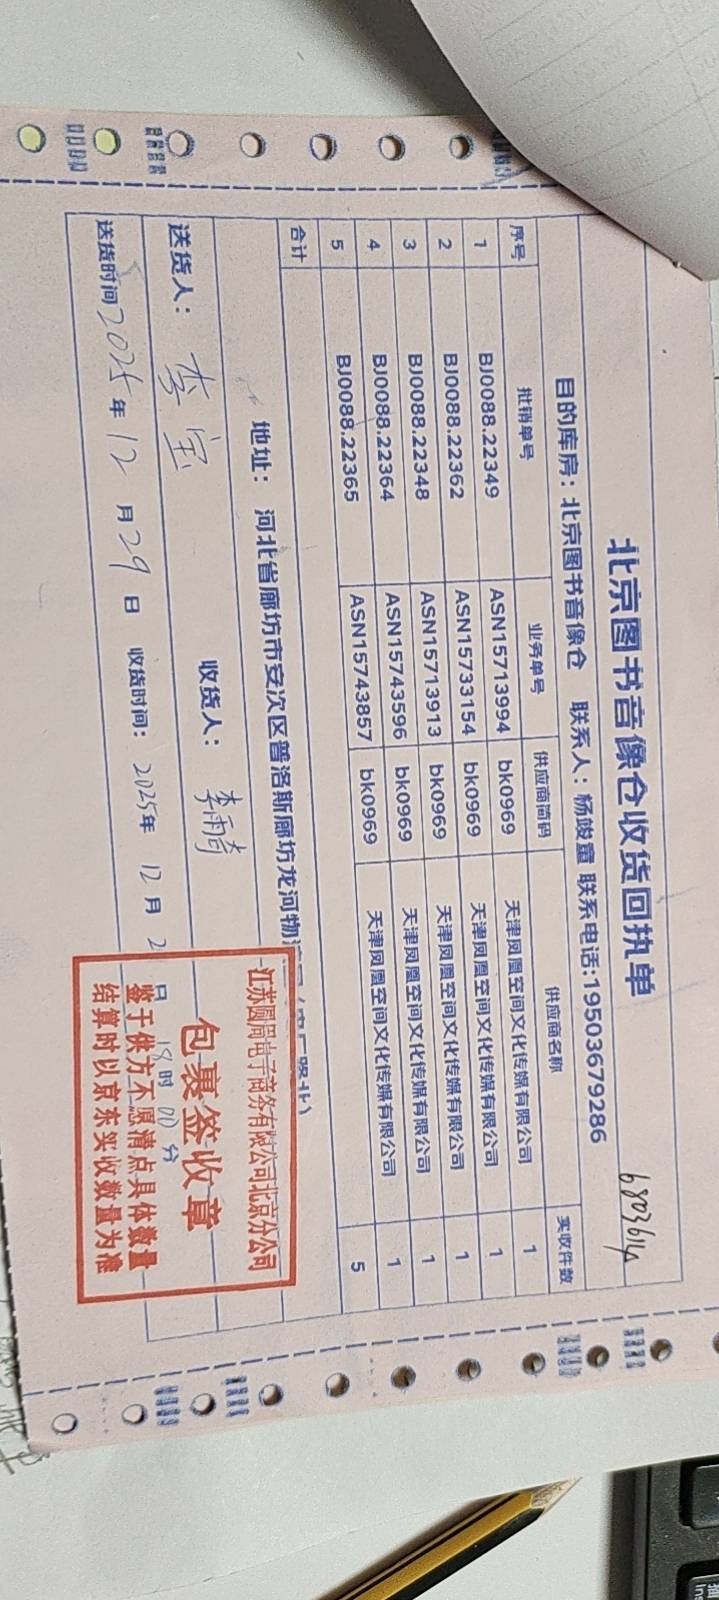 北京图书音像仓收货回执单
目的库房：北京图书音像仓 联系人：杨竣童 联系电话:19503679286
序号 批销单号 业务单号 供应商简码 供应商名称 实收件数
1 BJ0088.22349 ASN15713994 bk0969 天津凤凰空间文化传媒有限公司 1
2 BJ0088.22362 ASN15733154 bk0969 天津凤凰空间文化传媒有限公司 1
3 BJ0088.22348 ASN15713913 bk0969 天津凤凰空间文化传媒有限公司 1
4 BJ0088.22364 ASN15743596 bk0969 天津凤凰空间文化传媒有限公司 1
5 BJ0088.22365 ASN15743857 bk0969 天津凤凰空间文化传媒有限公司 1
合计 5
地址： 河北省廊坊市安次区普洛斯廊坊龙河物
送货人： 李宝 收货人： 李雨奇
送货时间 2025年 12 月 29 日 收货时间： 2025年 12 月 2 日 18时 00分
江苏圆周电子商务有限公司北京分公司
包裹签收章
鉴于供方不愿清点具体数量
结算时以京东实收数量为准